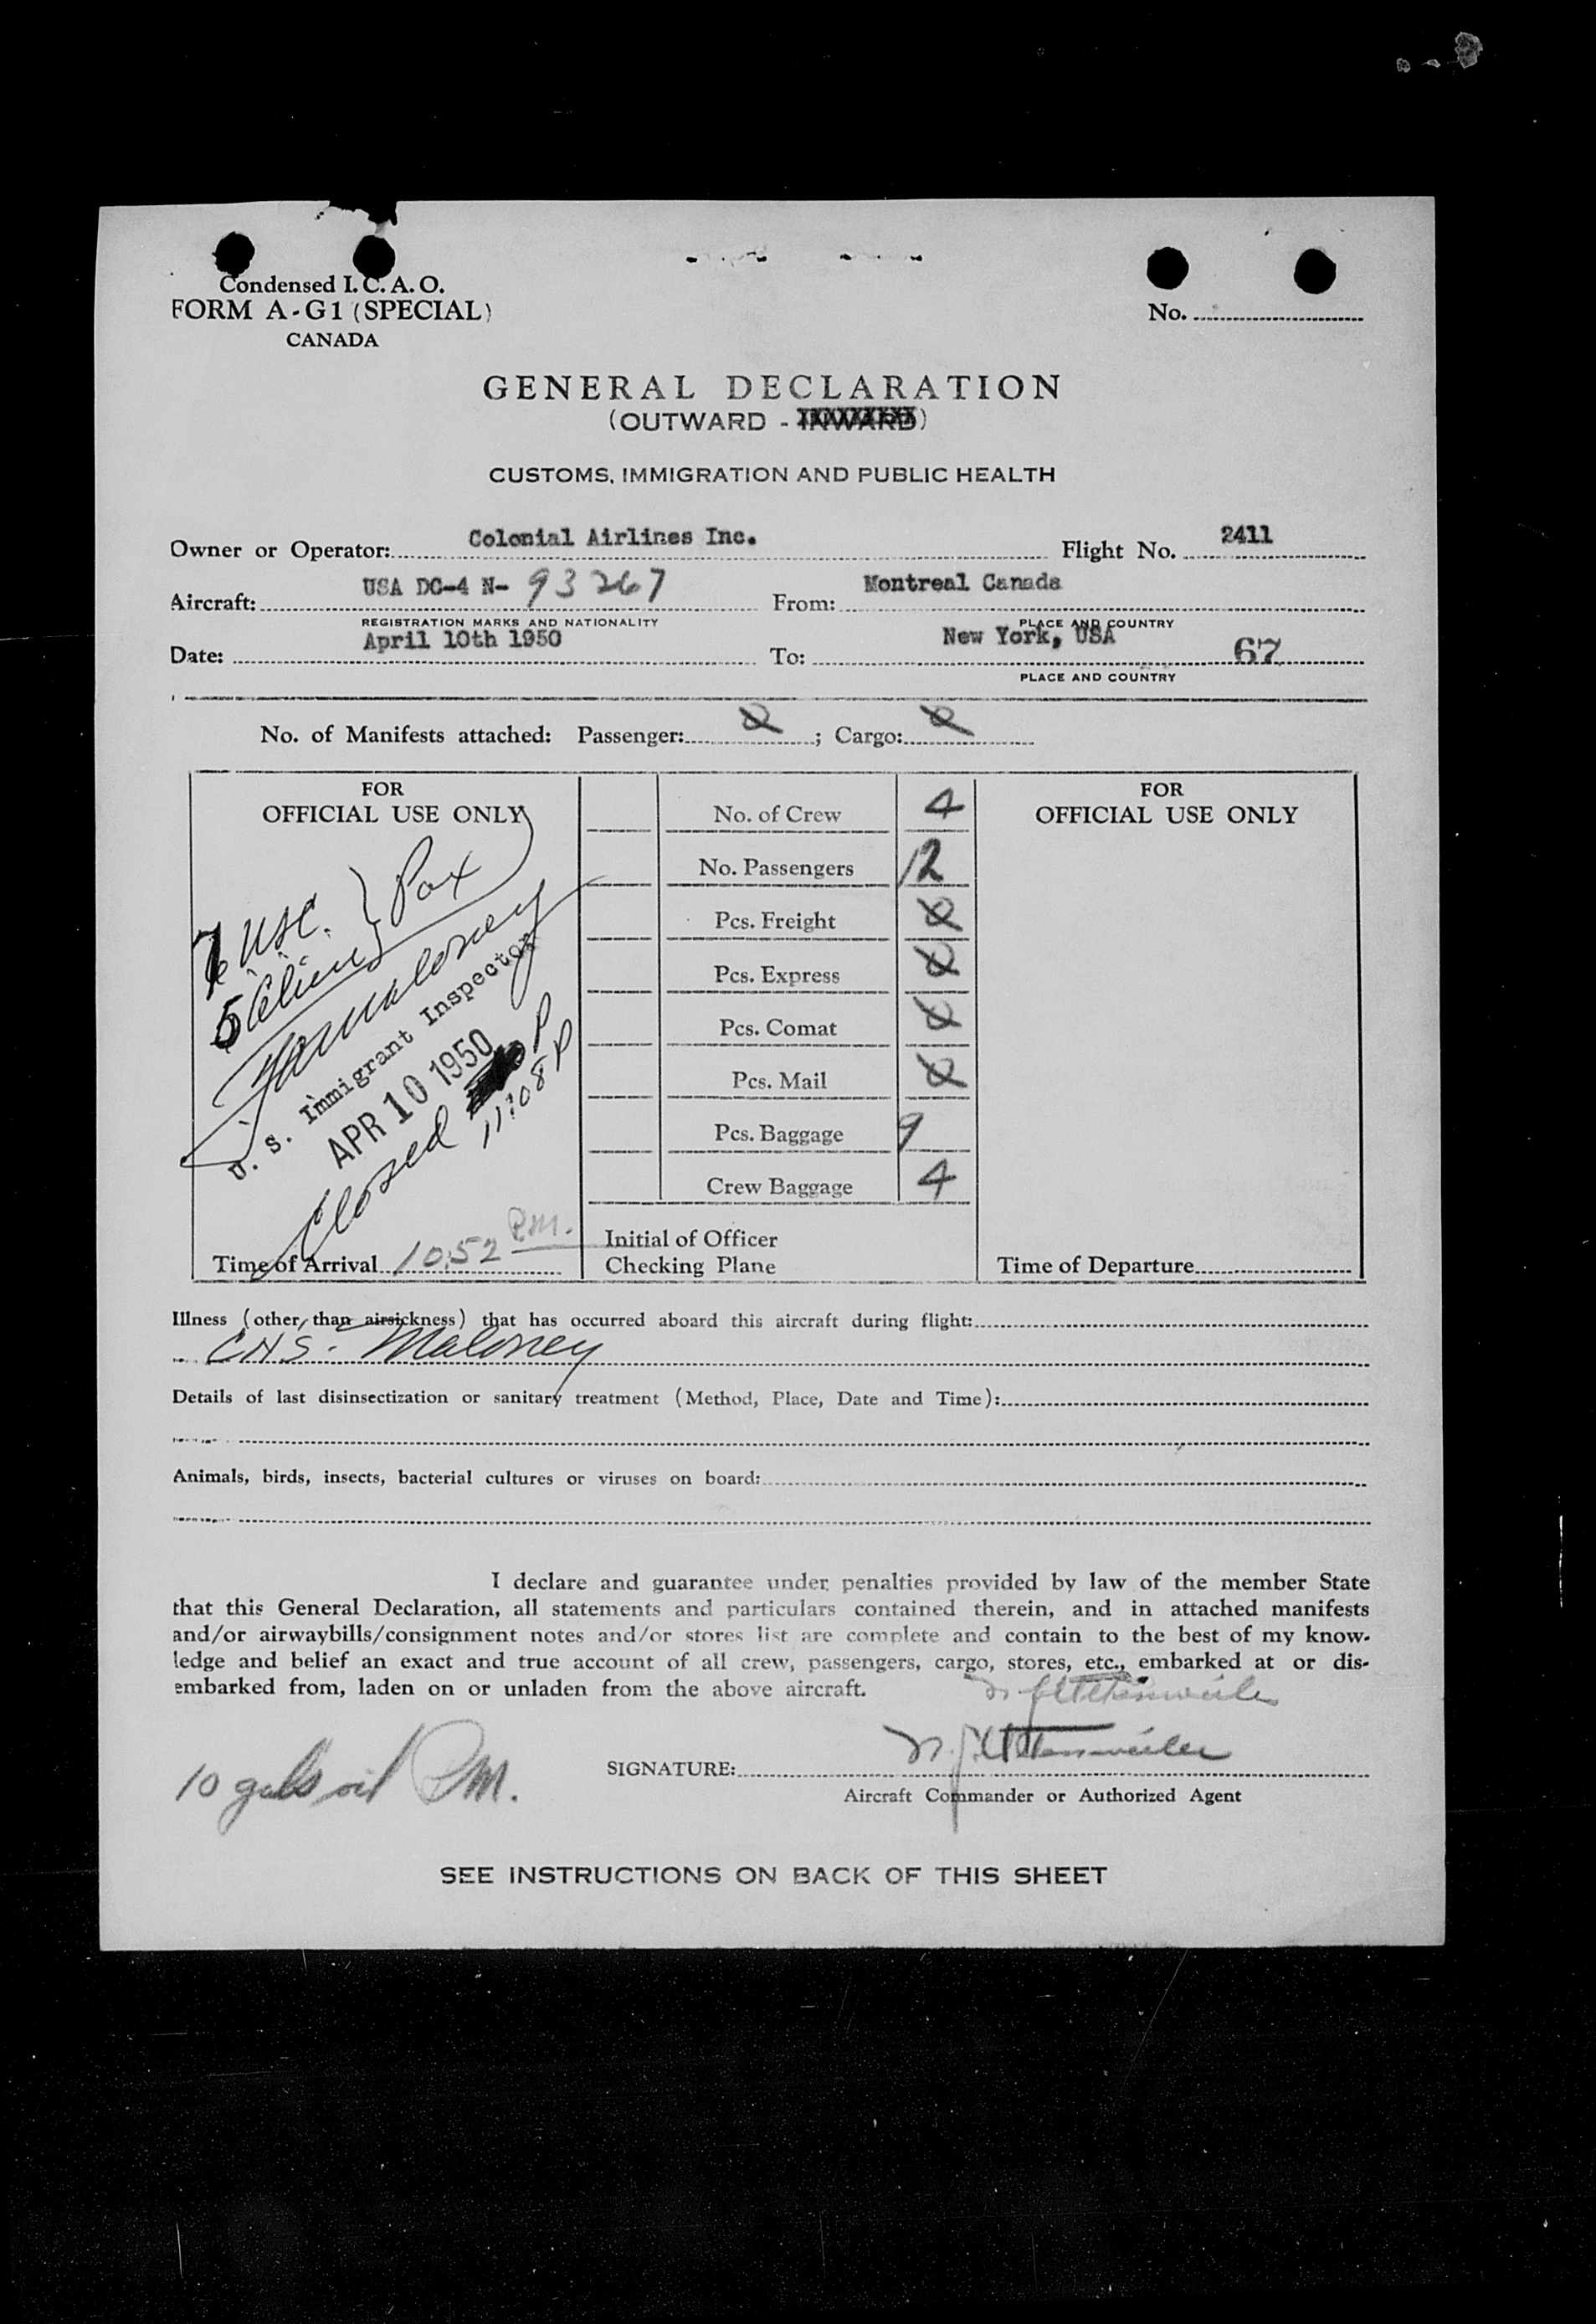 Condensed I. C. A. O.
FORM A-G1 (SPECIAL)
CANADA
No.
GENERAL DECLARATION
(OUTWARD - INWARD)
CUSTOMS, IMMIGRATION AND PUBLIC HEALTH
Owner or Operator: Colonial Airlines Inc. Flight No. 2411
Aircraft: USA DC-4 N- 93267 From: Montreal Canada
REGISTRATION MARKS AND NATIONALITY PLACE AND COUNTRY
Date: April 10th 1950 To: New York, USA 67
PLACE AND COUNTRY
No. of Manifests attached: Passenger: 0 ; Cargo: 0
FOR
OFFICIAL USE ONLY
7 USC.
5 Alien } Pax
Maloney
U. S. Immigrant Inspector
APR 10 1950
Closed P
11:08 P
Time of Arrival 10:52 P.M.
No. of Crew 4
No. Passengers 12
Pcs. Freight 0
Pcs. Express 0
Pcs. Comat 0
Pcs. Mail 0
Pcs. Baggage 9
Crew Baggage 4
Initial of Officer
Checking Plane
FOR
OFFICIAL USE ONLY
Time of Departure
Illness (other than airsickness) that has occurred aboard this aircraft during flight:
CHS. Maloney
Details of last disinsectization or sanitary treatment (Method, Place, Date and Time):
Animals, birds, insects, bacterial cultures or viruses on board:
I declare and guarantee under penalties provided by law of the member State
that this General Declaration, all statements and particulars contained therein, and in attached manifests
and/or airwaybills/consignment notes and/or stores list are complete and contain to the best of my know-
ledge and belief an exact and true account of all crew, passengers, cargo, stores, etc., embarked at or dis-
embarked from, laden on or unladen from the above aircraft.
10 gals oil PM.
SIGNATURE:
Aircraft Commander or Authorized Agent
SEE INSTRUCTIONS ON BACK OF THIS SHEET